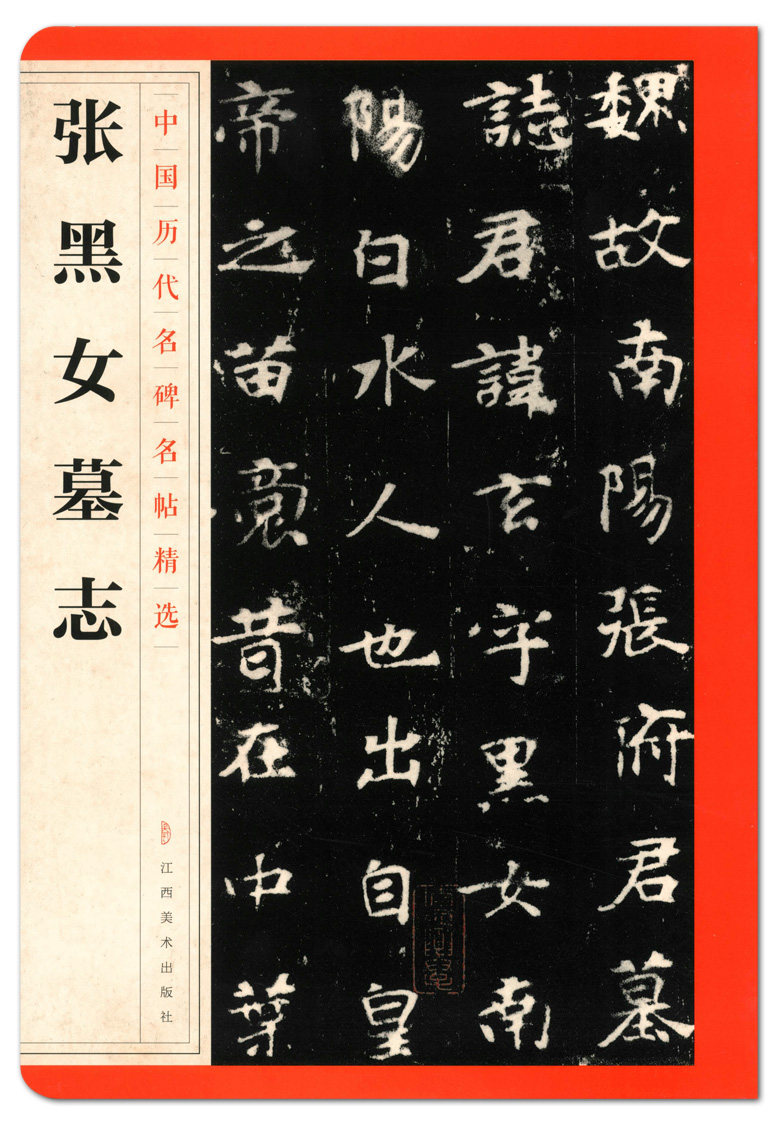 张黑女墓志
中国历代名碑名帖精选
江西美术出版社
魏故南陽張府君墓
誌君諱玄字黑女南
陽白水人也出自皇
帝之苗裔昔在中葉